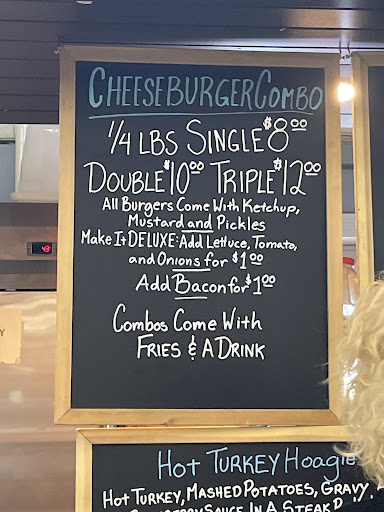 CHEESEBURGER COMBO
1/4 LBS SINGLE $8.00
DOUBLE $10.00 TRIPLE $12.00
All Burgers Come With Ketchup,
Mustard and Pickles
Make It DELUXE: Add Lettuce, Tomato,
and Onions for $1.00
Add Bacon for $1.00
Combos Come With
FRIES & A DRINK
Hot TURKEY Hoagie
Hot TURKEY, MASHED POTATOES, GRAVY,
SAUCE IN A STEAK